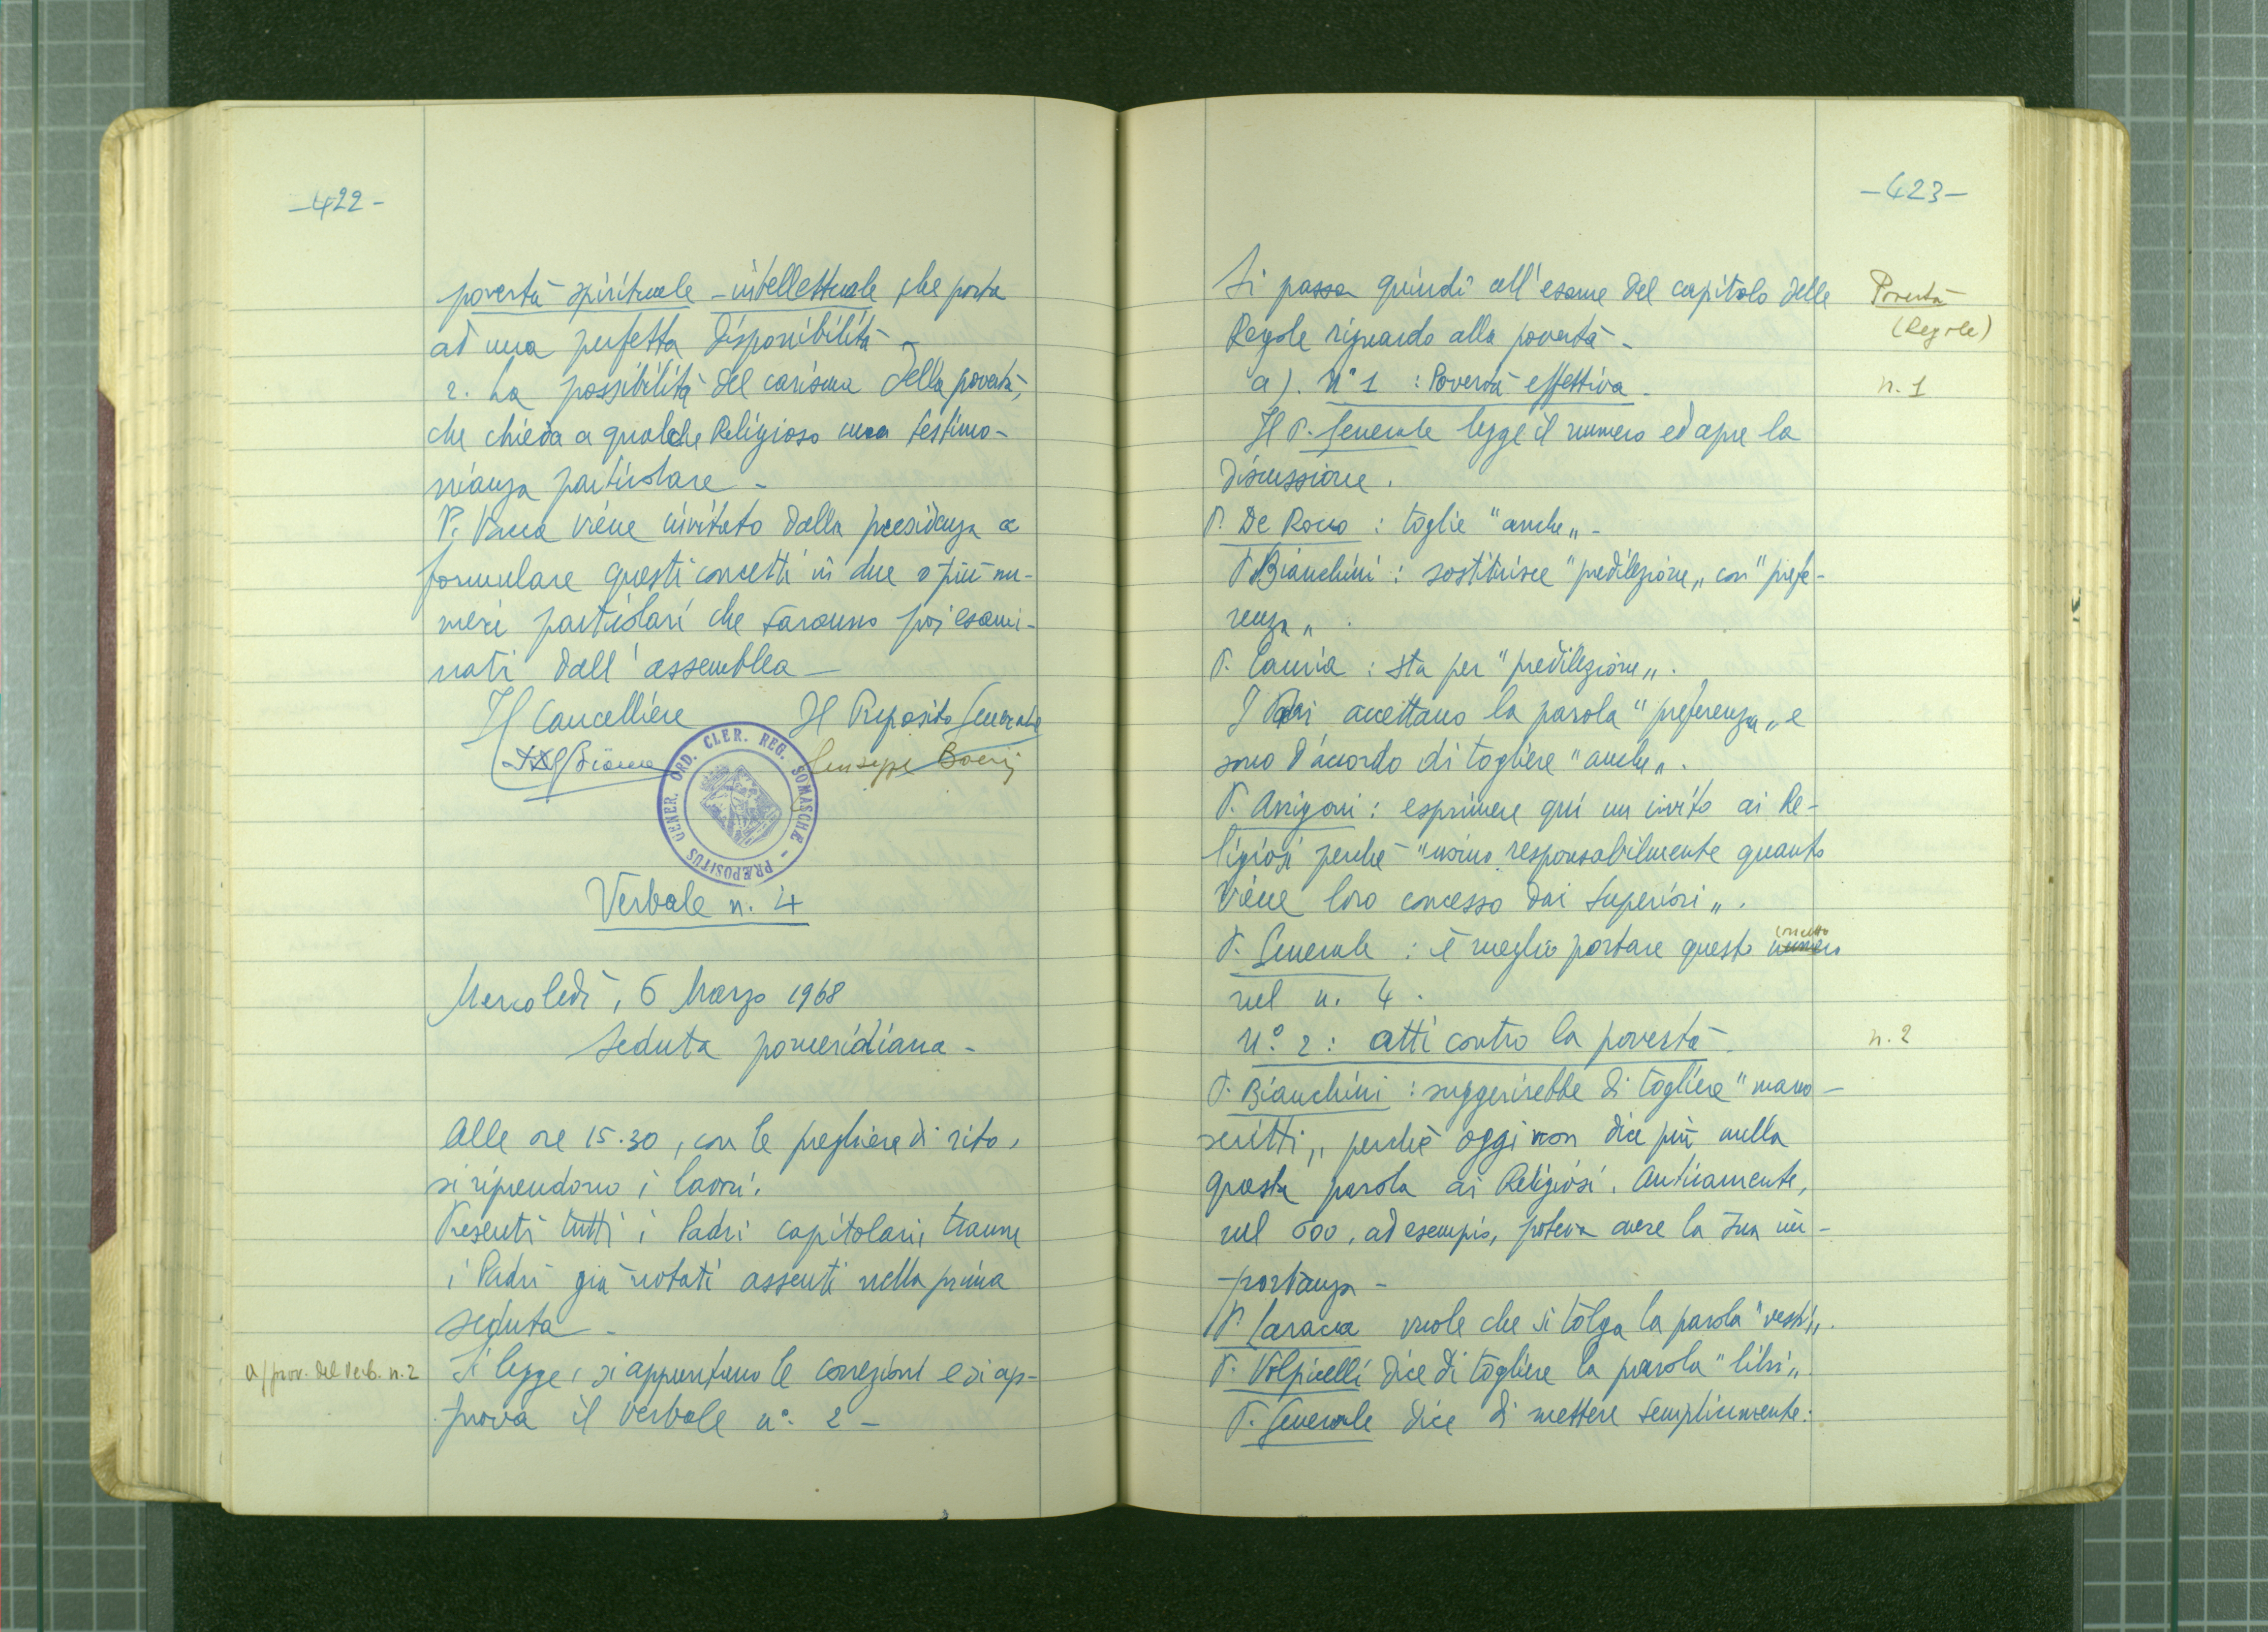 -422-
povertà spirituale - intellettuale, che porta
ad una perfetta disponibilità -
2. La possibilità del carisma della povertà,
che chieda a qualche Religioso una testimo-
nianza particolare -
P. Vacca viene invitato dalla presidenza a
formulare questi concetti in due o più nu-
meri particolari che saranno poi esami-
nati dall'assemblea -
Il Cancelliere Il Preposito Generale
Giuseppe Boeris
PRÆPOSITUS GENER. ORD. CLER. REG. SOMASCHÆ
Verbale n. 4
Mercoledì, 6 Marzo 1968
Seduta pomeridiana -
Alle ore 15.30, con le preghiere di rito,
si riprendono i lavori.
Presenti tutti i Padri capitolari, tranne
i Padri già notati assenti nella prima
seduta -
approv. del Verb. n. 2
Si legge, si appuntano le correzioni e si ap-
prova il verbale n° 2 -
-423-
Si passa quindi all'esame del capitolo delle
Povertà
Regole riguardo alla povertà -
(Regole)
a). N° 1 : Povertà effettiva.
n. 1
Il P. Generale legge il numero ed apre la
discussione.
P. De Rocco : toglie "anche" -
P. Bianchini : sostituisce "predilezione" con "prefe-
renza".
P. Cauria : sta per "predilezione".
I Padri accettano la parola "preferenza" e
sono d'accordo di togliere "anche".
P. Arrigoni : esprimere qui un invito ai Re-
ligiosi perché "usino responsabilmente quanto
viene loro concesso dai Superiori".
P. Generale : è meglio portare questo numero concetto
nel n. 4.
N.° 2 : atti contro la povertà.
n. 2
P. Bianchini : suggerirebbe di togliere "mano-
scritti", perché oggi non dice più nulla
questa parola ai Religiosi. Anticamente,
nel 600, ad esempio, poteva avere la sua im-
portanza -
P. Caracca vuole che si tolga la parola "vesti".
P. Volpicelli dice di togliere la parola "libri".
P. Generale dice di mettere semplicemente: